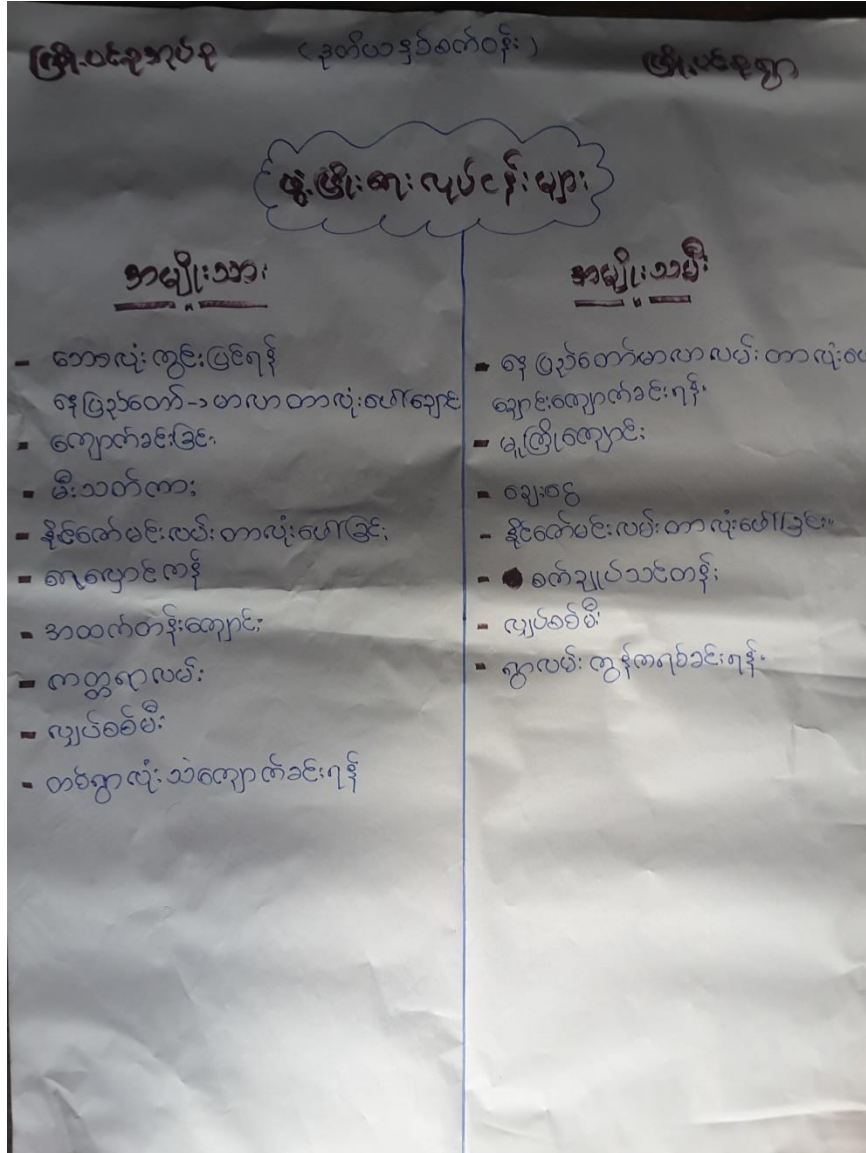 ကြိုးပင်စုအုပ်စု (ဒုတိယနှစ်စက်ဝန်း) ကြိုးပင်စုရွာ
ဖွံ့ဖြိုးရေးလုပ်ငန်းများ
အမျိုးသား
- ဘောလုံးကွင်းပြင်ရန်
နေပြည်တော်->မာလာတာလုံးပေါ်ချောင်း
- ကျောက်ခင်းခြင်း
- မီးသတ်ကား
- နိုင်ဇော်မင်းလမ်းတာလုံးပေါ်ခြင်း
- ရေလှောင်ကန်
- အထက်တန်းကျောင်း
- ကတ္တရာလမ်း
- လျှပ်စစ်မီး
- တစ်ရွာလုံးသဲကျောက်ခင်းရန်
အမျိုးသမီး
- နေပြည်တော်မာလာလမ်းတာလုံးပေ
ချောင်းကျောက်ခင်းရန်.
- မူကြိုကျောင်း
- ချေးငွေ
- နိုင်ဇော်မင်းလမ်းတာလုံးပေါ်ခြင်း။
- စက်ချုပ်သင်တန်း
- လျှပ်စစ်မီး
- ရွာလမ်းကွန်ကရစ်ခင်းရန်.